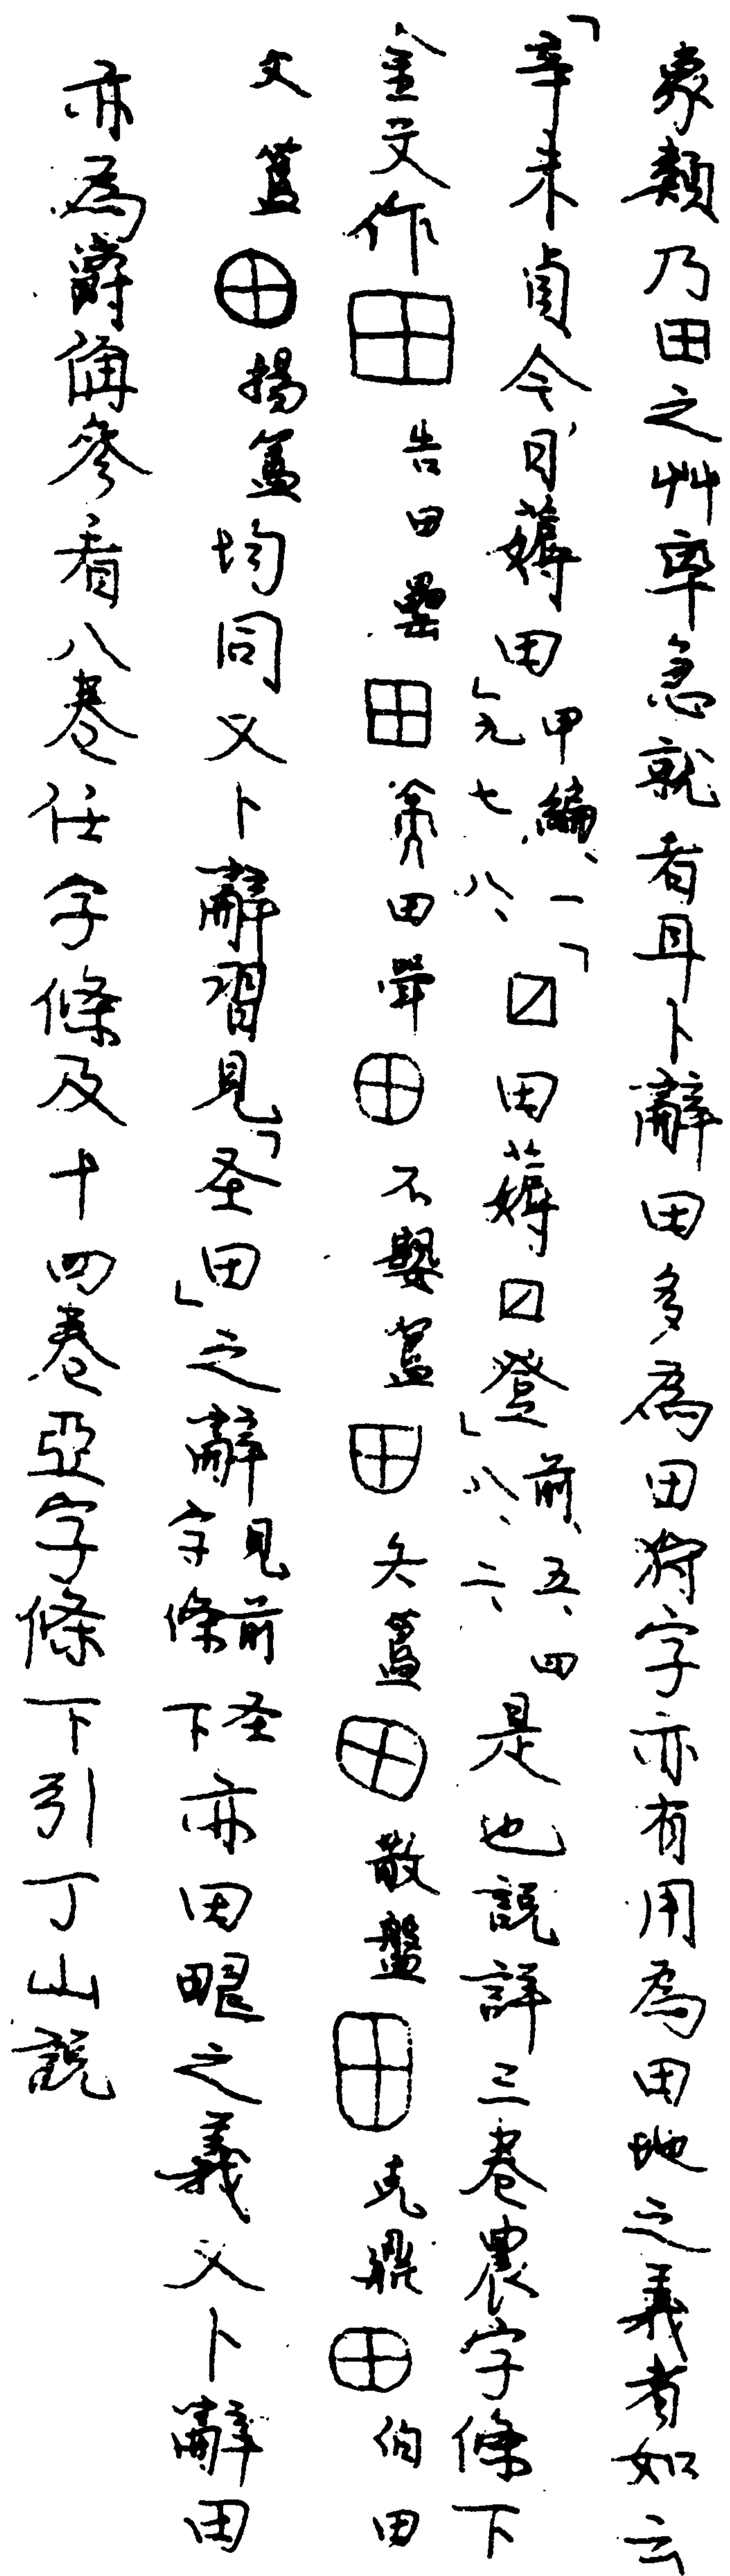 象類乃田之艸率急就者耳卜辭田多為田狩字亦有用為田地之義者如云
「辛未貞今日薅田」甲編、一九七八、「囗田薅囗登」前、五、四八、二、是也說詳三卷農字條下
金文作田告田罍田田田不𡢁簋田簋田散盤田克鼎田伯田
文簋田揚簋均同又卜辭習見「圣田」之辭見前圣字條下亦田畯之義又卜辭田
亦為爵偁參看八卷任字條及十四卷亞字條下引丁山說